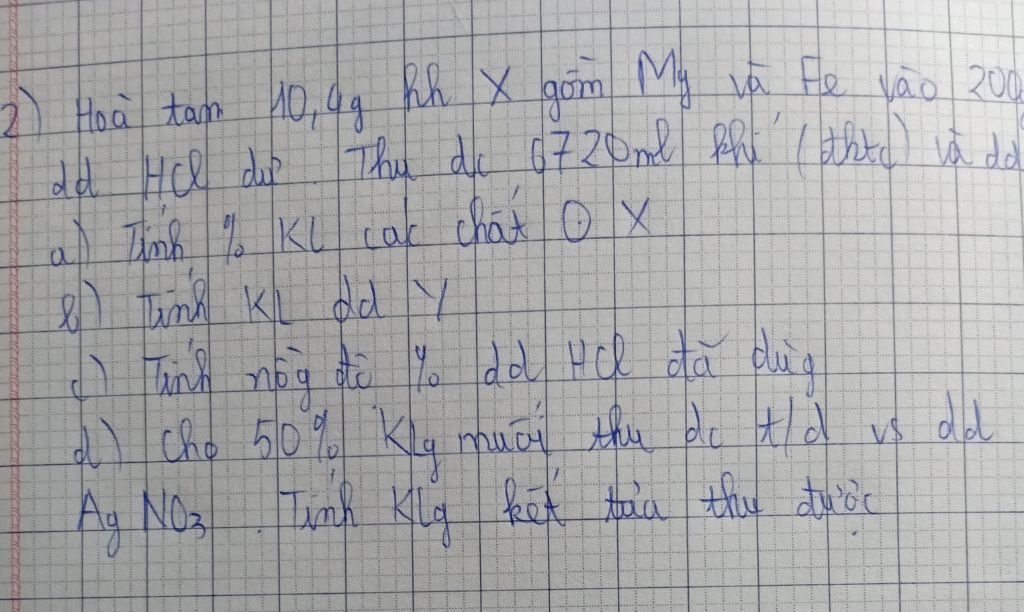 2) Hoà tam 10,4g hh X gồm Mg và Fe vào 200
dd HCl dư. Thu dc 6720ml khí (đktc) và dd
a) Tính % KL các chất ⊙ X
b) Tính KL dd Y
c) Tính nồg độ % dd HCl đã dùg
d) Cho 50% Klg muối thu dc t/d vs dd
AgNO3. Tính Klg kết tủa thu được